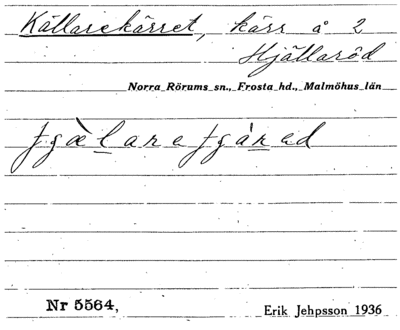 Källarekärret, kärr å 2
Hjällaröd
Norra Rörums sn., Frosta hd., Malmöhus län
Nr 5564,
Erik Jehpsson 1936